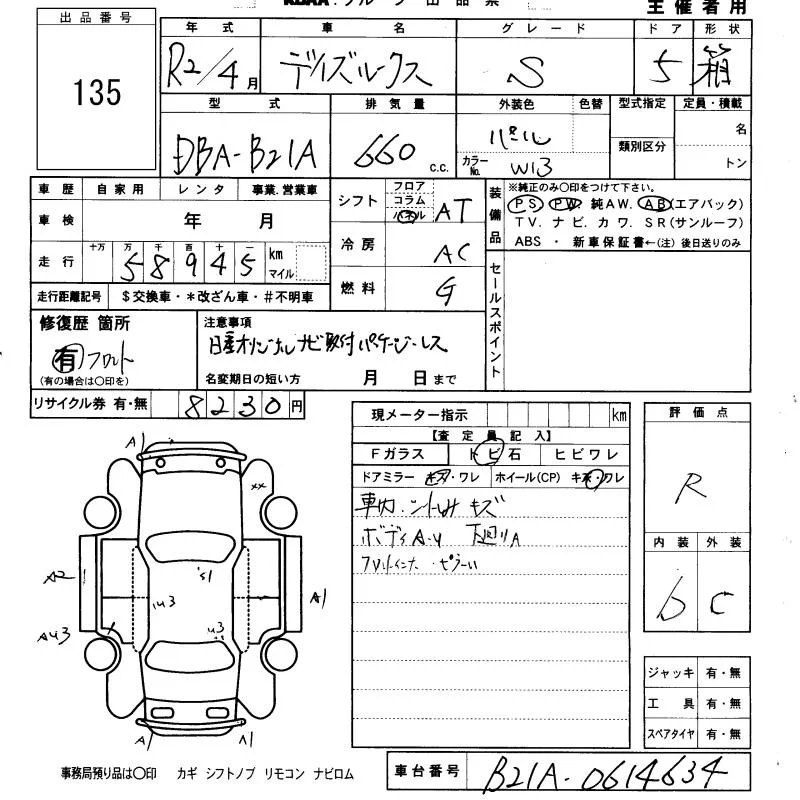 出品番号
135
主催者用
年 式 車 名 グ レ ー ド ド ア 形 状
R2/4月 デイズルークス S 5 箱
型 式 排 気 量 外装色 色替 型式指定 定員・積載
DBA-B21A 660 c.c. パール 類別区分 名
カラーNo. W13 トン
車 歴 自 家 用 レ ン タ 事業.営業車
車 検 年 月
走 行 十万 万 千 百 十 一
58945 km マイル
走行距離記号 $交換車・*改ざん車・#不明車
シフト フロア コラム パネル AT
冷 房 AC
燃 料 G
装備品
※純正のみ○印をつけて下さい。
PS PW 純AW. AB(エアバック)
TV. ナビ. カワ. SR(サンルーフ)
ABS ・ 新車保証書←(注)後日送りのみ
セールスポイント
修復歴 箇所
有 フロント
(有の場合は○印を)
注意事項
日産オリジナルナビ取付パッケージレス
名変期日の短い方 月 日まで
リサイクル券 有・無 8230円
現メーター指示 km
【査 定 員 記 入】
Fガラス トビ石 ヒビワレ
ドアミラー キズ・ワレ ホイール(CP) キズ・ワレ
車内 キズ
ボディA.U 下廻りA
評 価 点
R
内 装 外 装
b C
A1
xx
A2
S1
U3
U3
A1
AU3
A1
A1
ジャッキ 有・無
工 具 有・無
スペアタイヤ 有・無
事務局預り品は○印 カギ シフトノブ リモコン ナビロム
車台番号 B21A-0614634